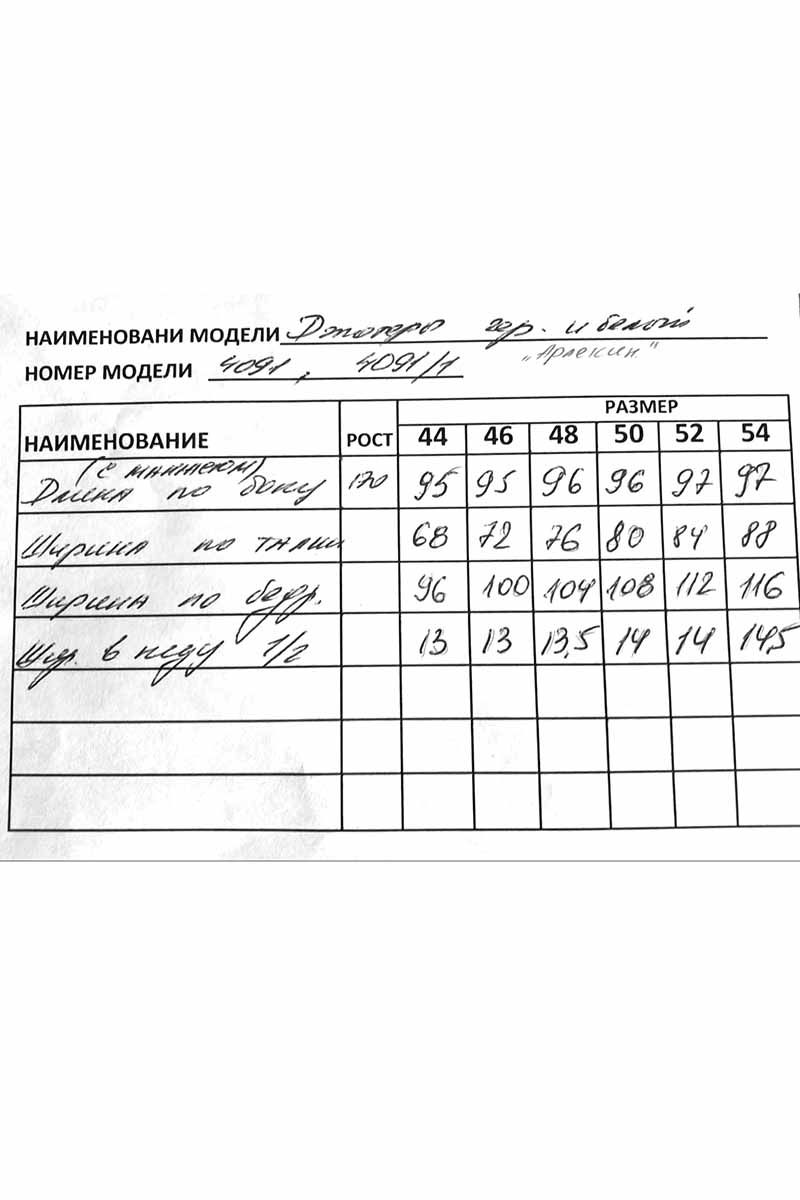 НАИМЕНОВАНИ МОДЕЛИ Джогеры чер. и белый
НОМЕР МОДЕЛИ 4091, 4091/1 "Арлекин"
РАЗМЕР
НАИМЕНОВАНИЕ РОСТ 44 46 48 50 52 54
(с манжетом)
Длина по боку 170 95 95 96 96 97 97
Ширина по талии 68 72 76 80 84 88
Ширина по бедр. 96 100 104 108 112 116
Шир. в низу 1/2 13 13 13,5 14 14 14,5